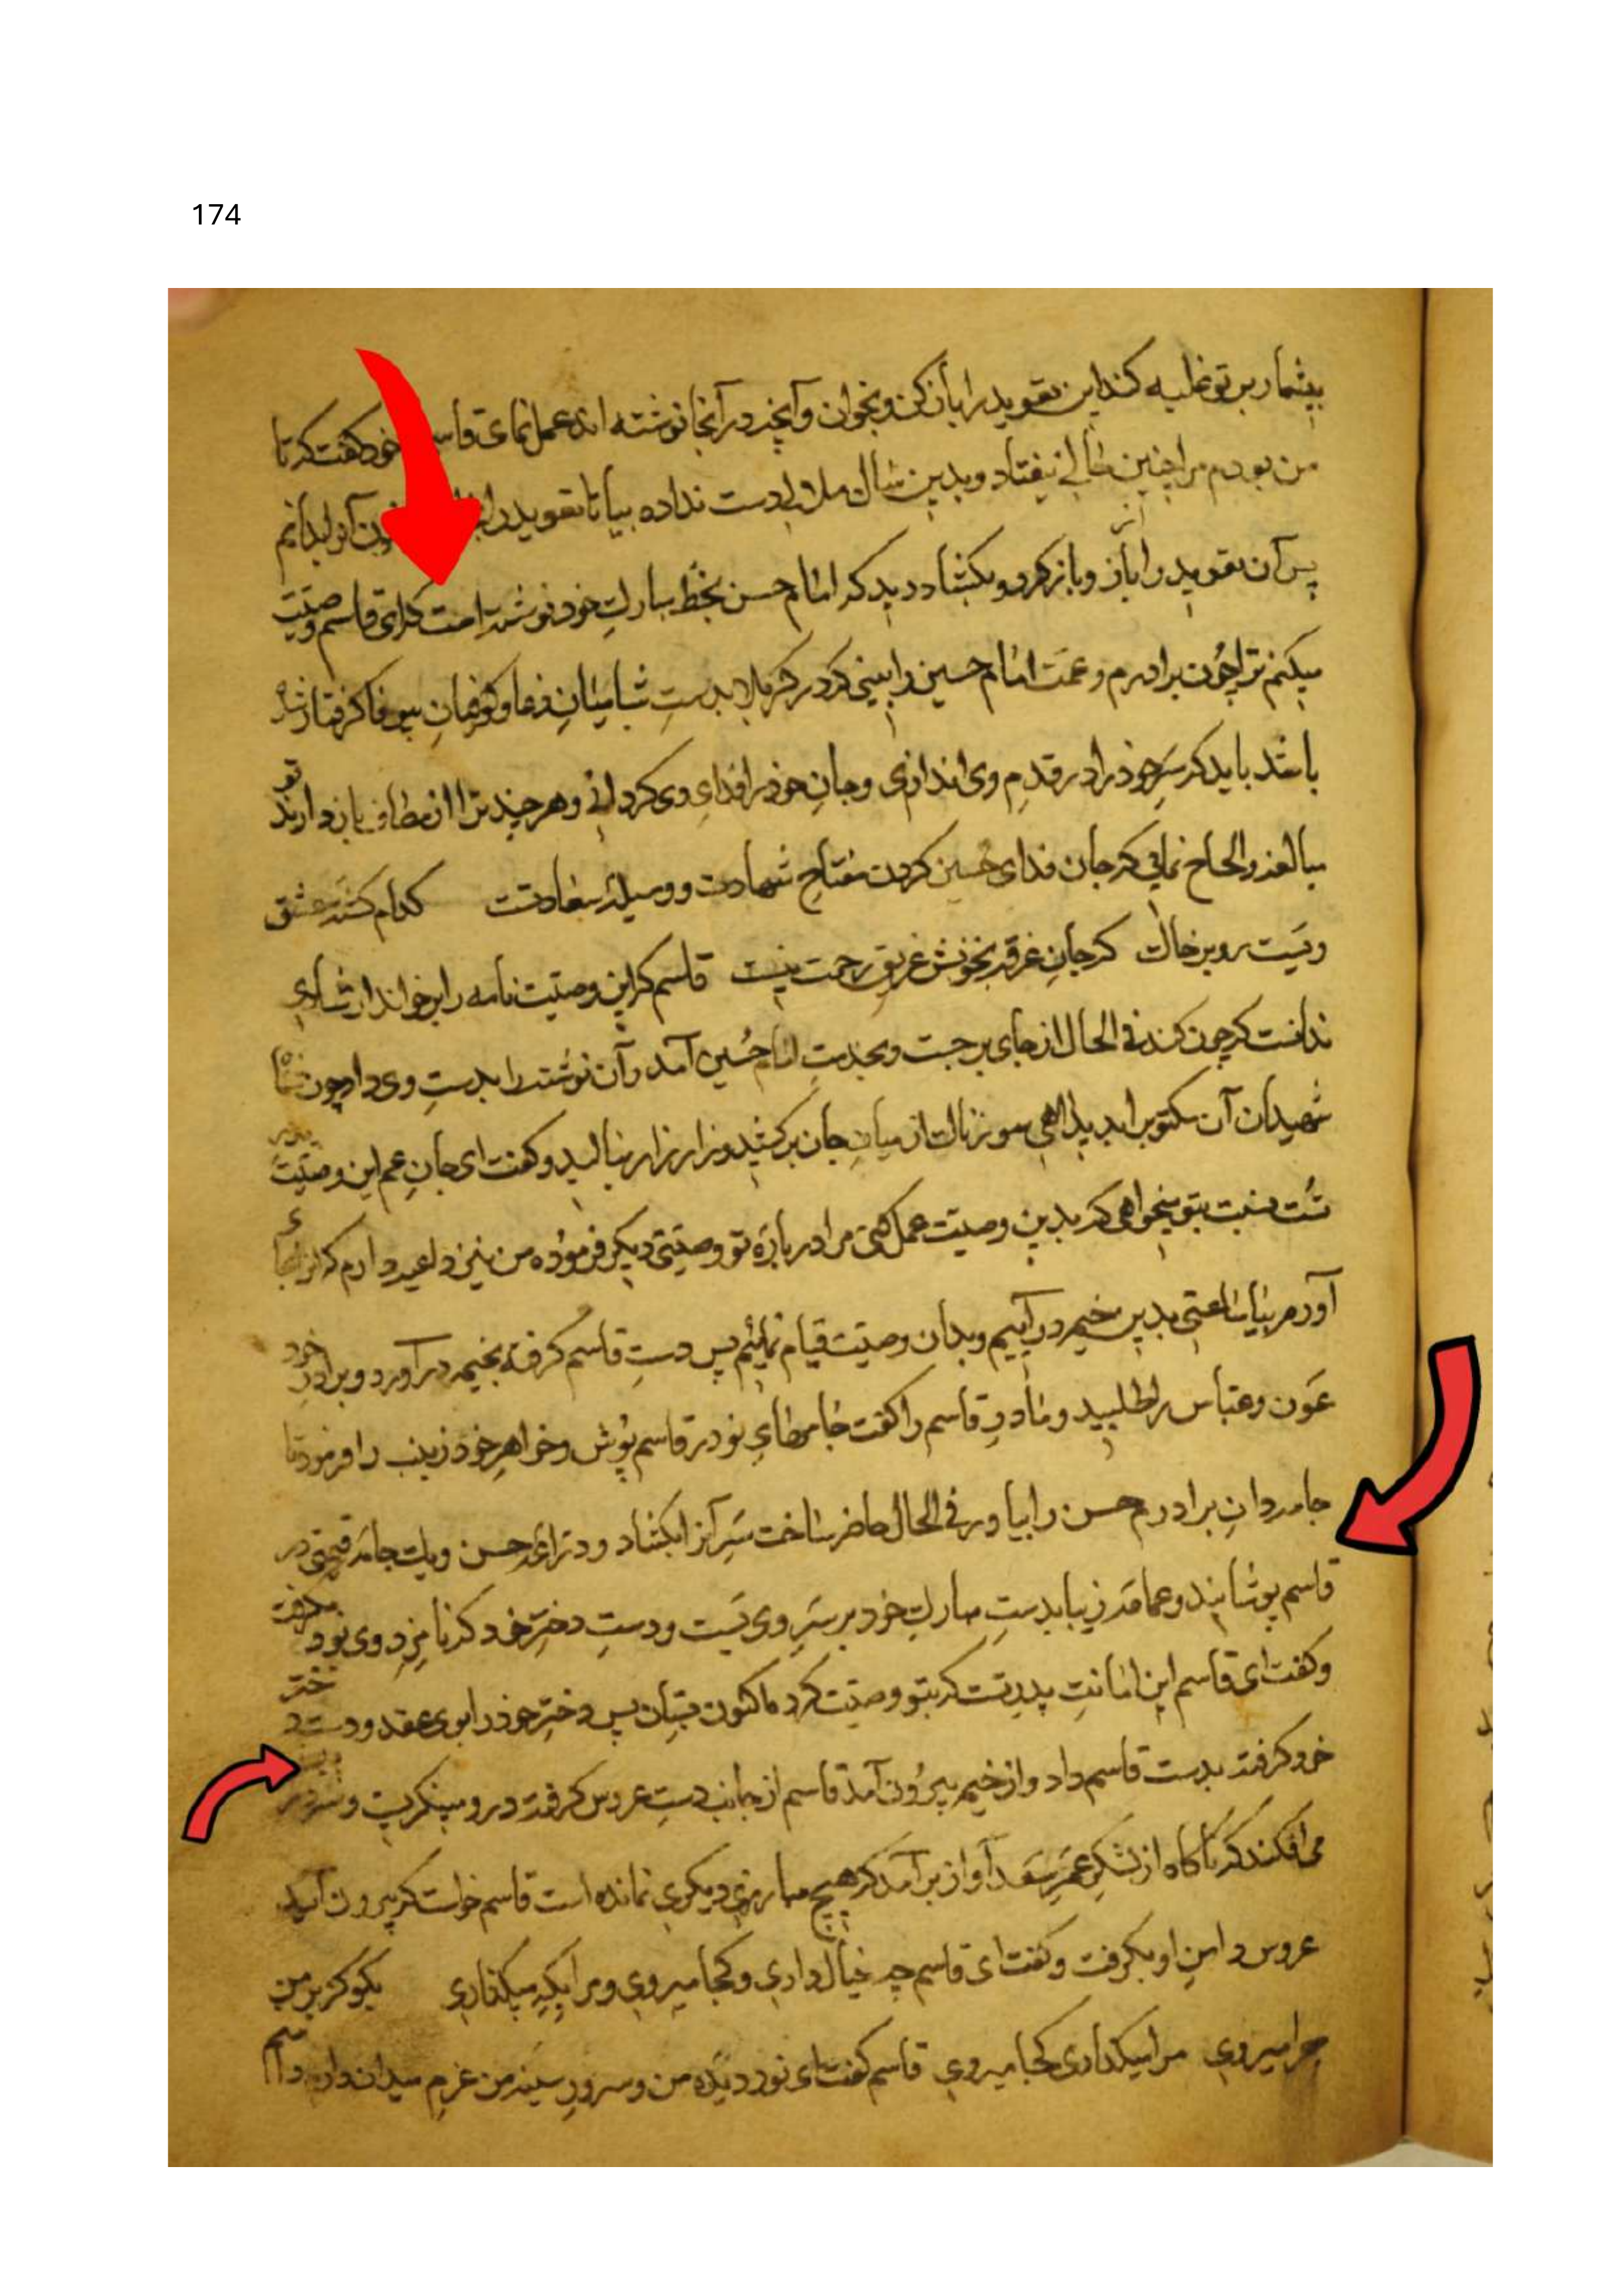 174
بیشمار بر تو غلبه کند این تعویذ را باز کن و بخوان و آنچه در آنجا نوشته اند عمل نمای قاسم خود گفت که تا
من بودم مرا چنین حالی نیفتاد و بدین سان ملالی دست نداده بیا تا تعویذ را آنرا بدانم
پس آن تعویذ را باز و باز کرد و بکشاد دید که امام حسن بخط مبارک خود نوشته است که ای قاسم وصیت
میکنم ترا چون برادرم و عمت امام حسین را بینی که در کربلا بدست شامیان دغا و کوفیان بیوفا کرفتار شده
باشد باید که سر خود را در قدم وی اندازی و جان خود را فدای وی کردانی و هر چند ترا از مطاف باز دارند تو
مبالغه و الحاح نمائی که جان فدای حسین کردن مفتاح شهادت و وسیله سعادتست کدام کشته عشق
ویست رو بر خاک که جان غرقه بخونش غریق رحمت نیست قاسم که این وصیت نامه را برخواند از شادی
ندانست که چون کند فی الحال از جای برجست و بخدمت امام حسین آمد و آن نوشته را بدست وی داد چون شاه
شهیدان آن مکتوب را بدید آهی سوزناک از میان جان برکشید و زار زار زار بنالید و کفت ای جان عم این وصیت پدر
تست نسبت بتو میخواهی که بدین وصیت عمل کنی مرا در باره تو وصیتی دیکر فرموده من نیز داعیه دارم که آنرا بجا
آورم بیا ساعتی بدین خیمه درآییم و بدان وصیت قیام نمائیم پس دست قاسم کرفته بخیمه درآورد و برادر خود
عون و عباس را طلبید و مادر قاسم را کفت جامهای نو در قاسم پوش و خواهر خود زینب را فرمود تا
جامه دان برادرم حسن را بیاور فی الحال حاضر ساخت سر آنرا بکشاد و دراعه حسن و یک جامه قیمتی در
قاسم پوشانید و عمامه زیبا بدست مبارک خود بر سر وی بست و دست دختر خود که نامزد وی بود بکرفت
و کفت ای قاسم این امانت پدر تست که بتو وصیت کرد تا کنون بستان پس دختر خود را بوی عقد و دست دختر
خود کرفته بدست قاسم داد و از خیمه بیرون آمد قاسم از جانب دست عروس کرفته در و مینکریست و سر در پیش
می افکند که ناکاه از لشکر عمر سعد آواز برآمد که هیچ مبارزی دیکری نمانده است قاسم خواست که بیرون آید
عروس دامن او بکرفت و کفت ای قاسم چه خیال داری و کجا میروی و مرا بکه میکذاری بکو کز بر من
چرا میروی مرا میکذاری کجا میروی قاسم کفت ای نور دیده من و سرور سینه من عزم میدان دارم